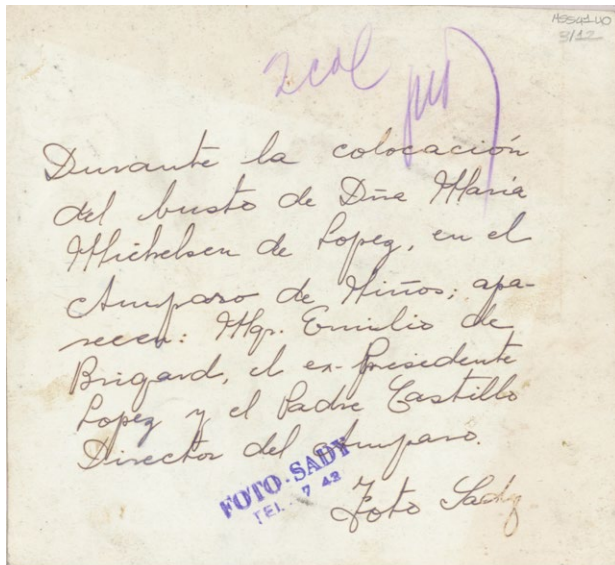 MSS941UO
3/12
2 col
Durante la colocación
del busto de Dña María
Michelsen de Lopez, en el
Amparo de Niños; apa-
recen: Mgr. Emilio de
Brigard, el ex-Presidente
Lopez y el Padre Castillo
Director del Amparo.
FOTO-SADY
TEL. 7 43
Foto Sady